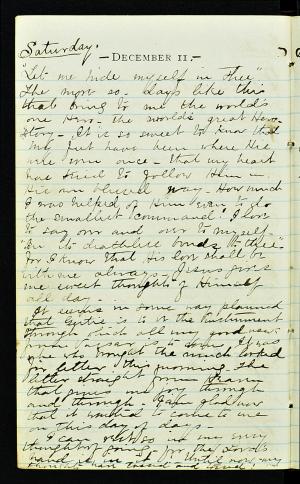 Saturday.
—DECEMBER 11.—
Let me hide myself in Thee"
The more so - days like this
that bring to me the world's
one Hero - the world's great Hero-
Story - It is so sweet to know that
my feet have been where His
were once - that my heart
has tried to follow Him in
His own blessed way - How much
I was helped of Him to do
the smallest command! I love
to say over and over to myself
"in deathless bonds to Thee"
for I know that His love shall be
with me always - Jesus gives
me sweet thoughts of Himself
all day.
It seems in some way planned
that is to be the instrument
through which all my good news
is to come. It was
who brought the much looked
for letter this morning. The
letter straight from
that gives me joy through
and through. I am glad
that it should come to me
on this day of days.
I can rest so in my very
thought of going, for the Lord's
hand is in it. Until now, my